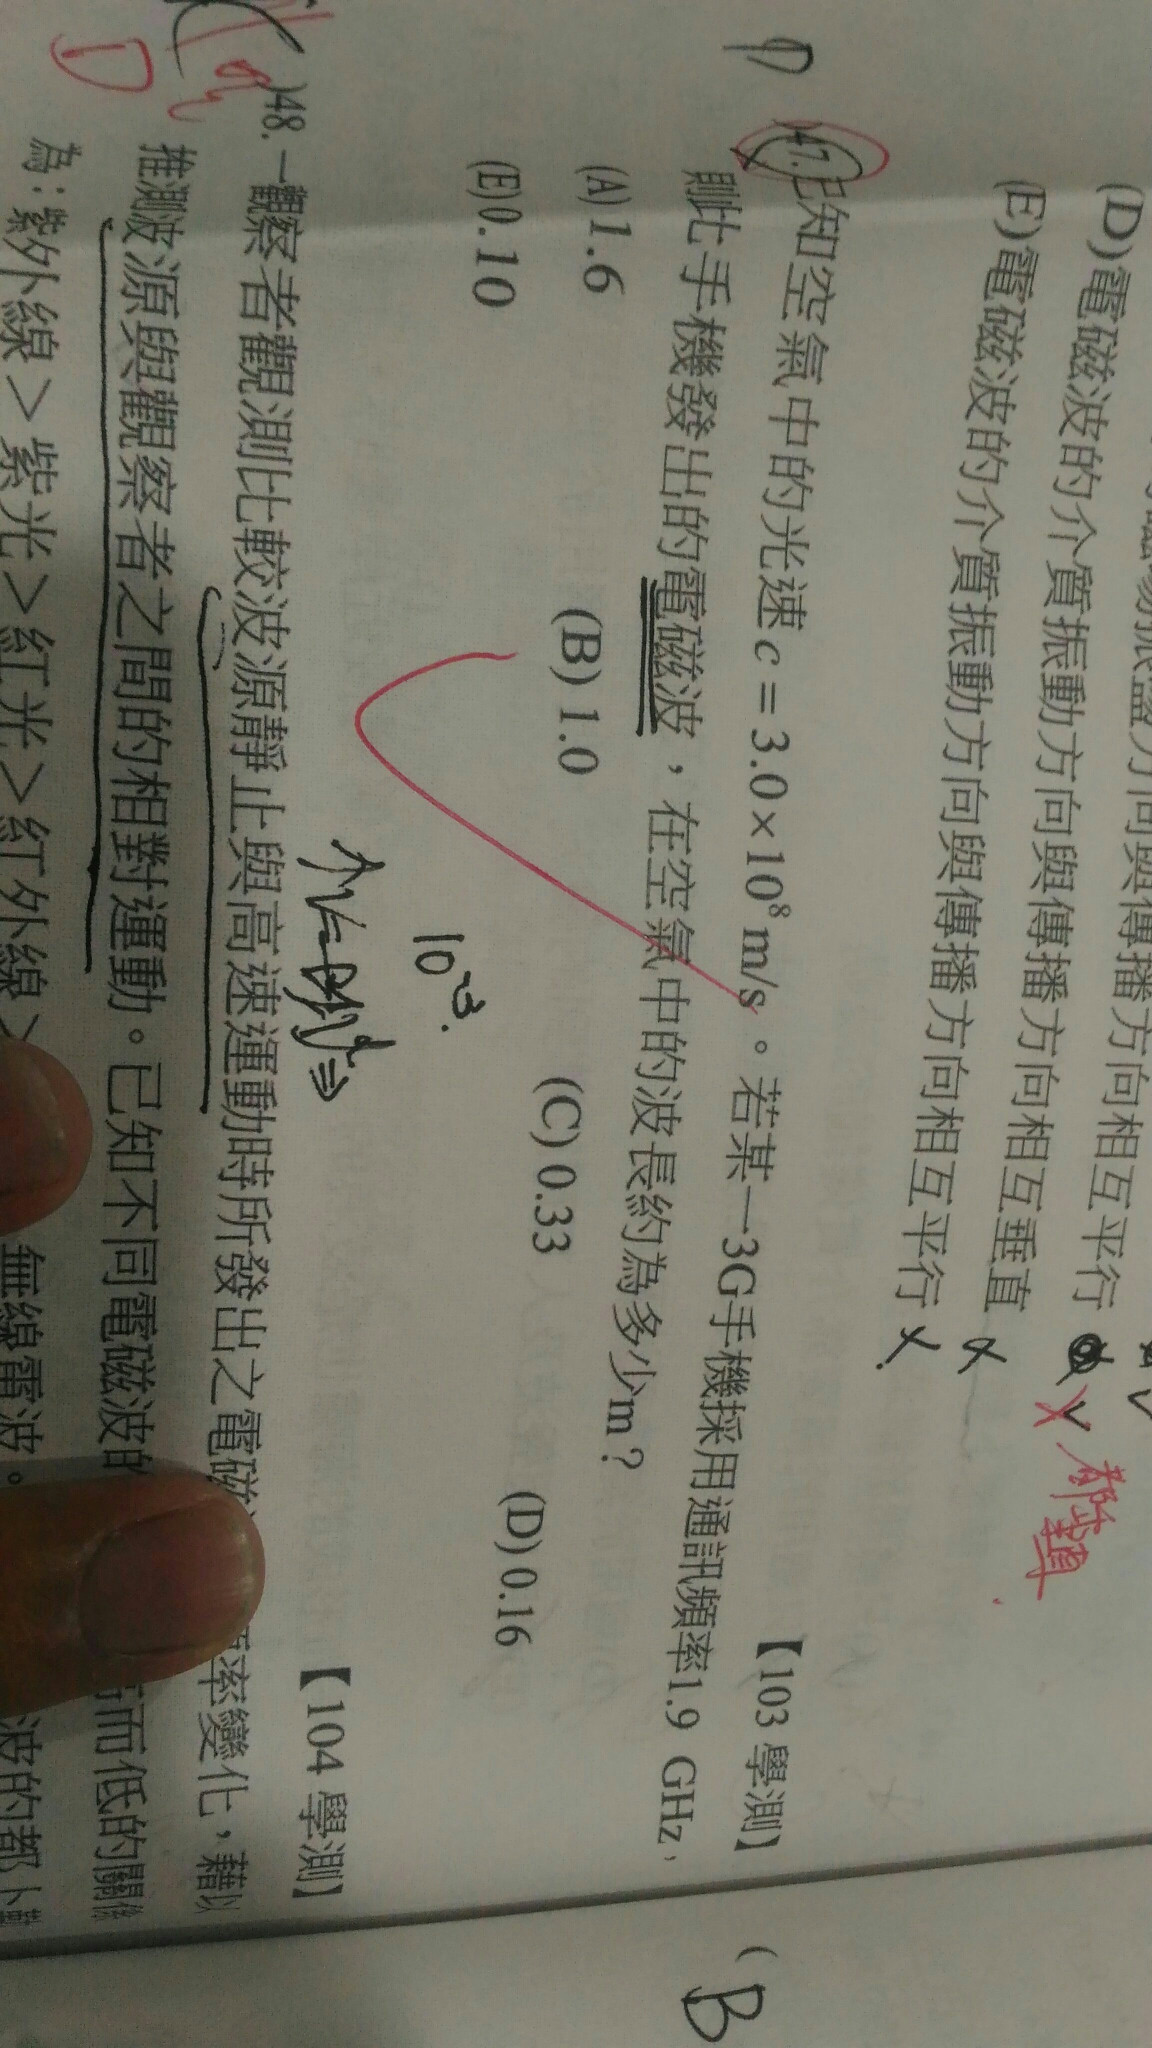 (D)電磁波的介質振動方向與傳播方向相互垂直 X
(E)電磁波的介質振動方向與傳播方向相互平行 X
D )47.已知空氣中的光速c=3.0×10⁸m/s。若某一3G手機採用通訊頻率1.9 GHz,
【103 學測】
則此手機發出的電磁波,在空氣中的波長約為多少m?
(A)1.6 (B)1.0 (C)0.33 (D)0.16
(E)0.10
10⁻³.
【104 學測】
)48.一觀察者觀測比較波源靜止與高速運動時所發出之電磁 率變化,藉以
推測波源與觀察者之間的相對運動。已知不同電磁波的 而低的關係
為:紫外線>紫光>紅光>紅外線> 無線電波。
D
B
都垂直